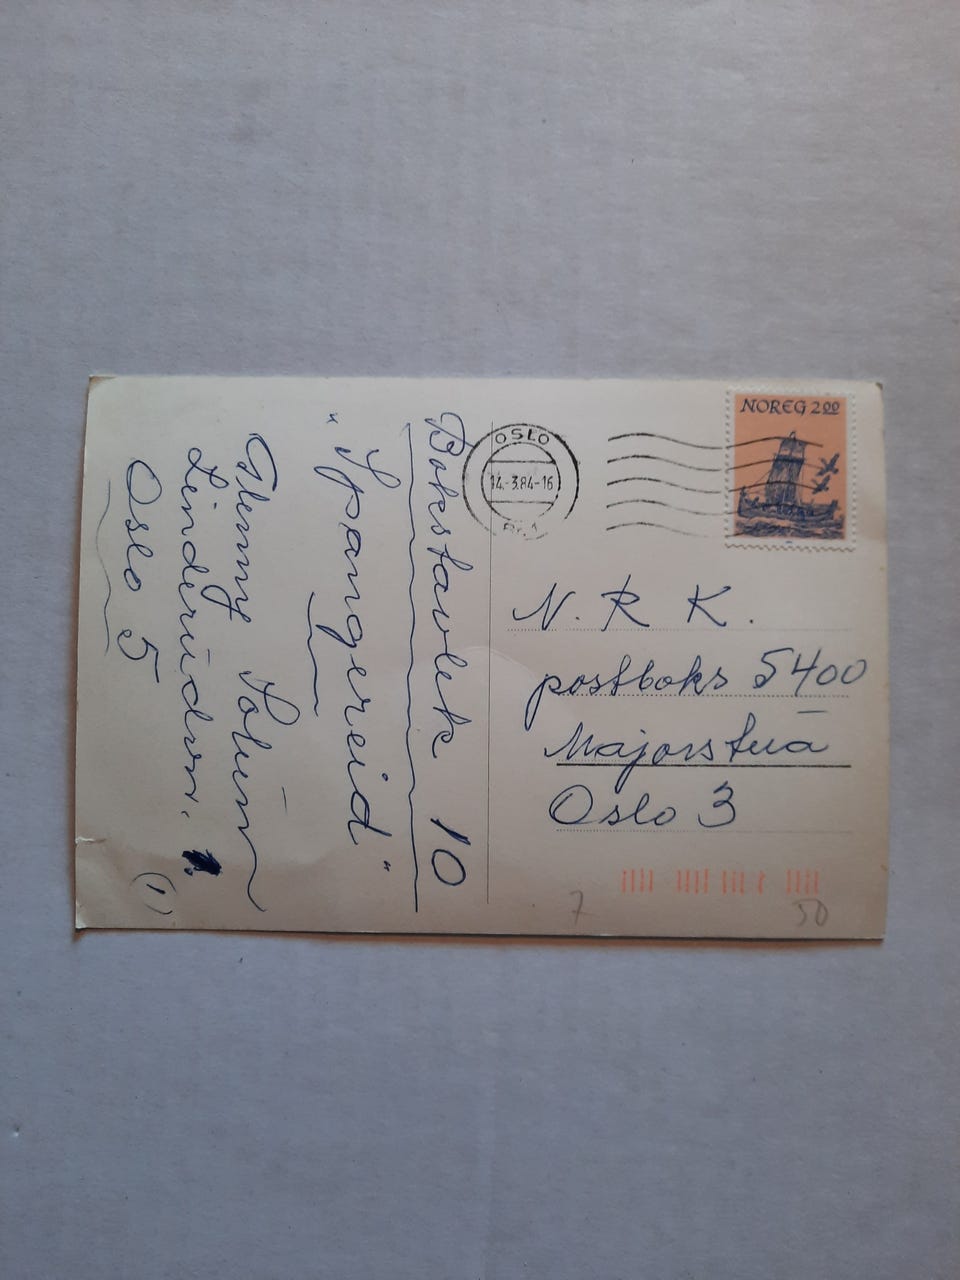 Bokstavlek 10
"Spangereid"
Solum
Linderudvn.
Oslo 5
(1)
OSLO
14.-3.84-16
NOREG 2 00
N. R K.
postboks 5400
Majorstua
Oslo 3
7
50